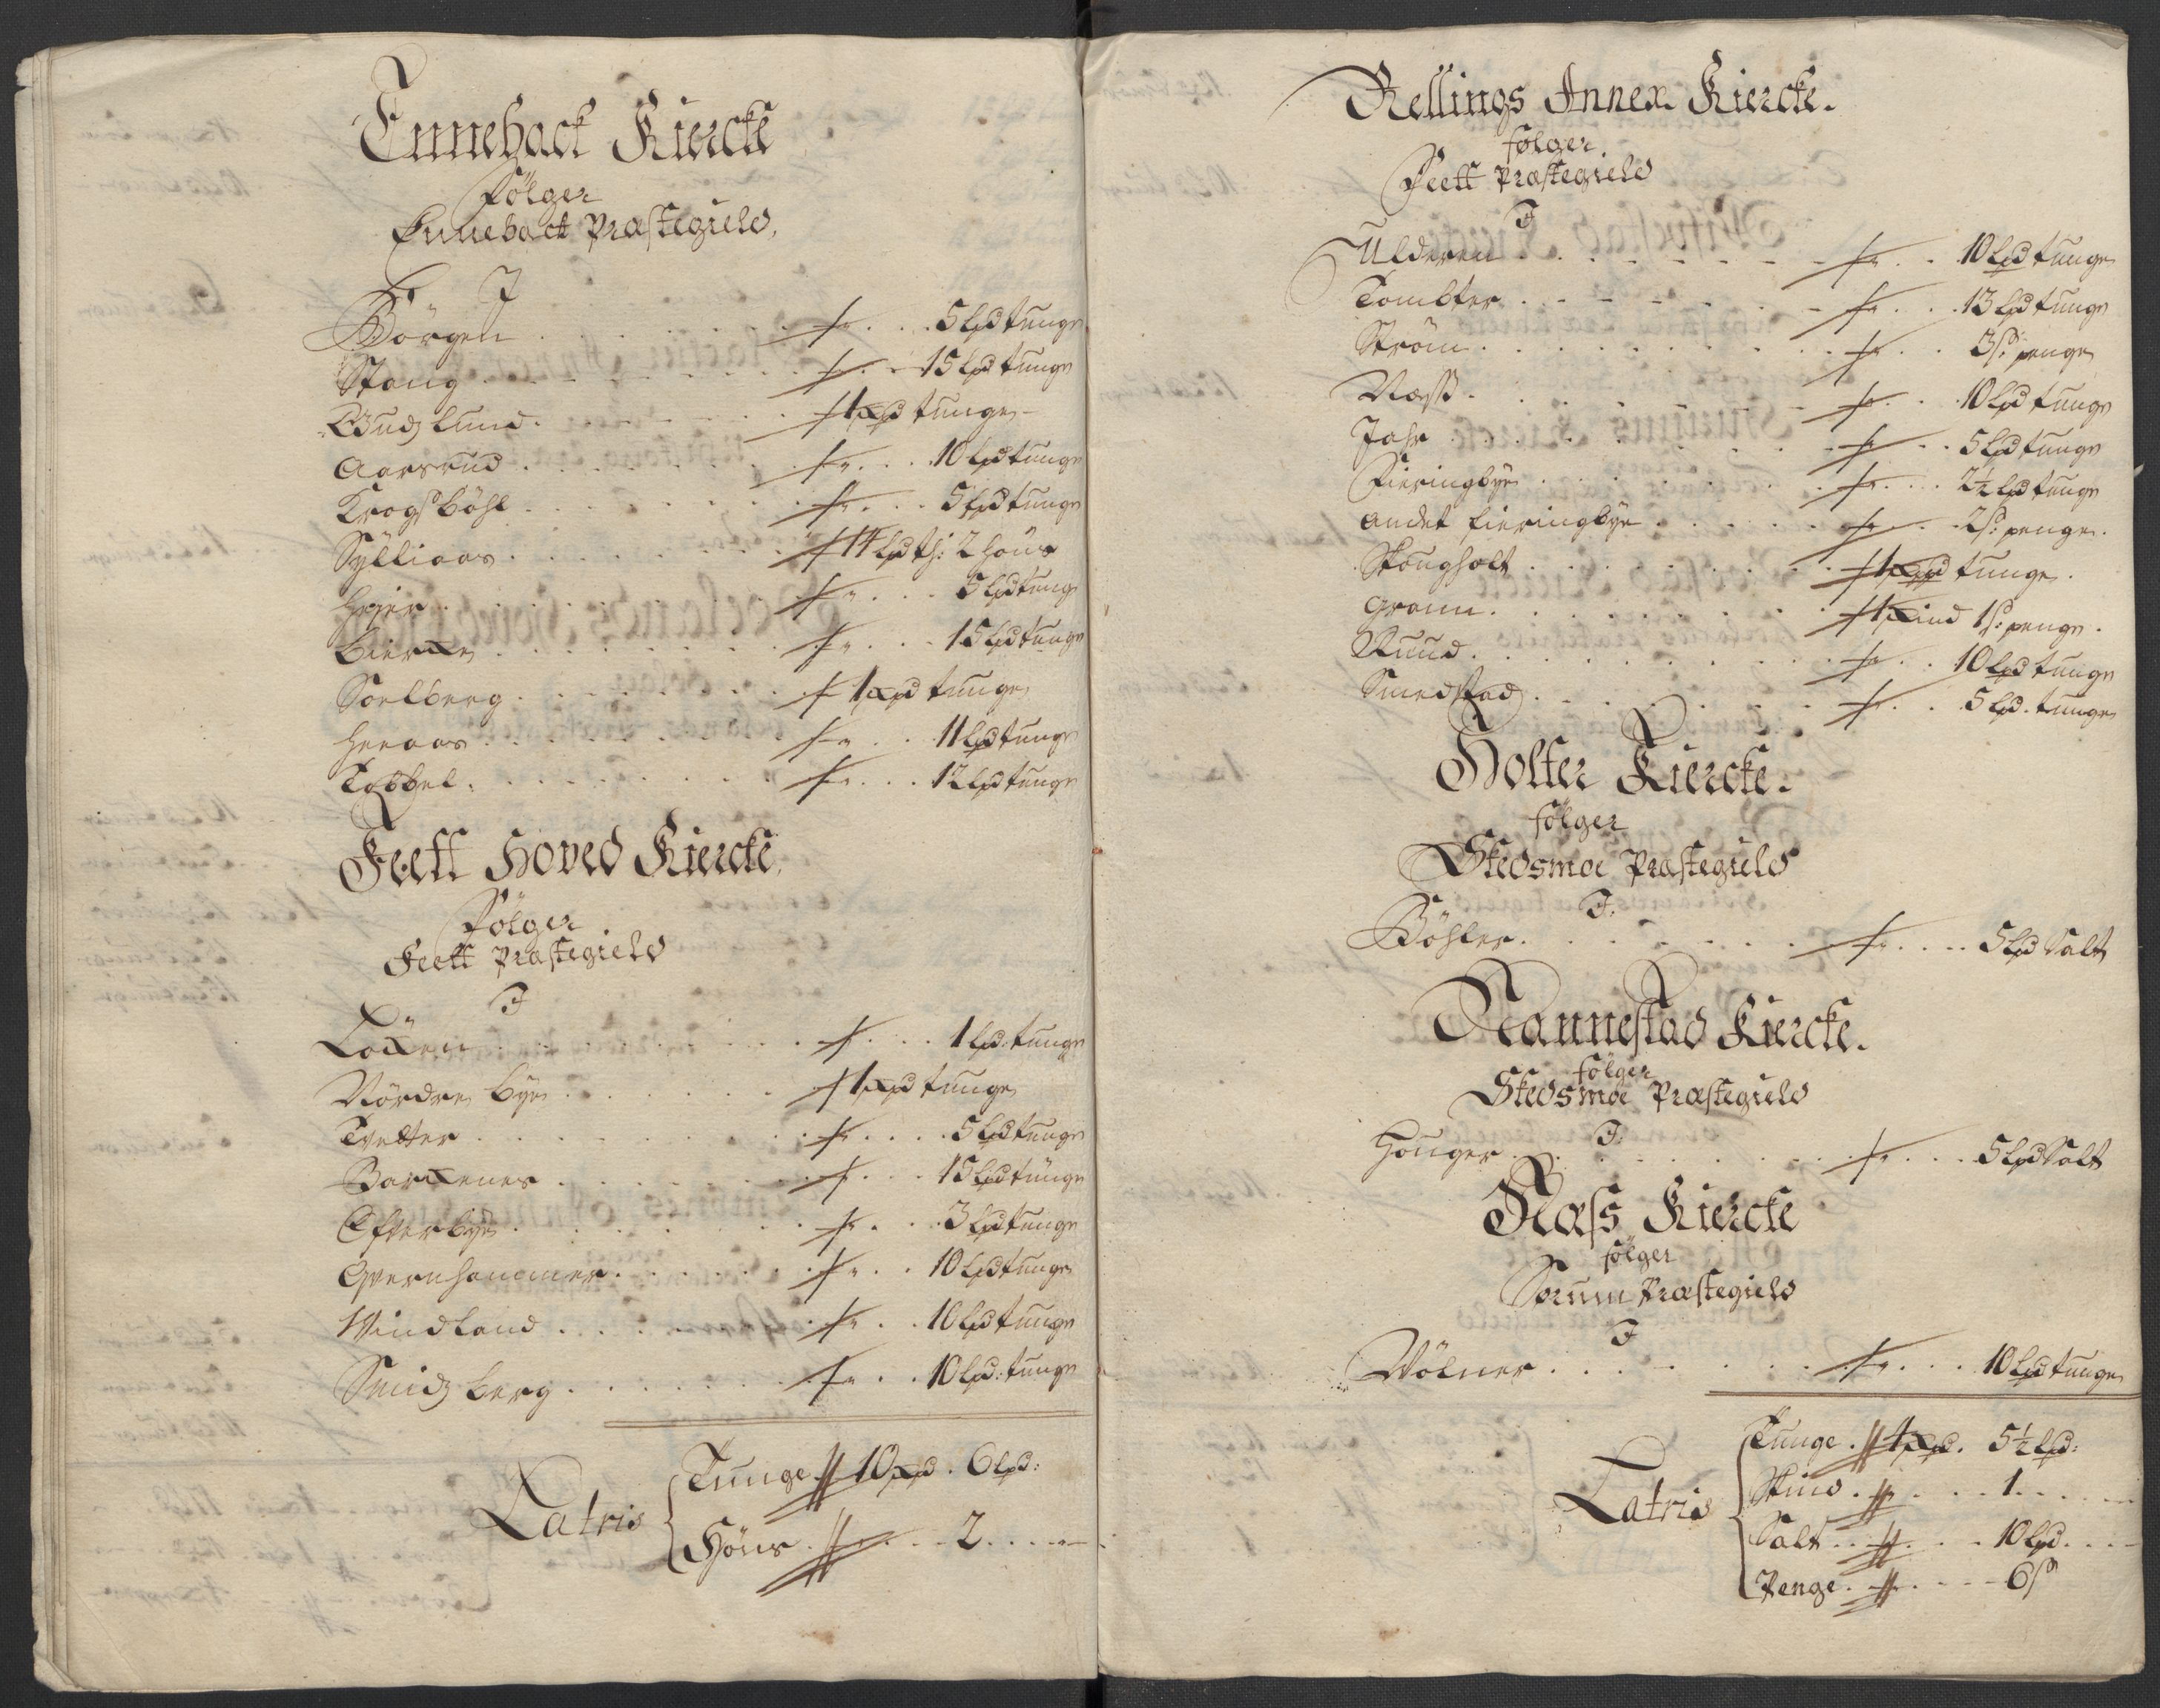 Enneback Kiercke
Fölger
Enneback Præstegield,
J
Börgen . . . 5 Lpd tunge
Stang . . . 15 Lpd tunge
Gudslund . . . 1 Xpd tunge
Aarsrud . . . 10 Lpd tunge
Krogsböhl . . . 5 Lpd tunge
Sylliaas . . . 14 Lpd th: 2 höns
Heyer . . . 5 Lpd tunge
Biercke . . . 15 Lpd tunge
Soelberg . . . 1 Xpd tunge
Heeaas . . . 11 Lpd tunge
Tobbel . . . 12 Lpd tunge
Feett Hoved Kiercke
Fölger
Feett Præstegield
J
Löxen . . . 1 Lpd: tunge
Nördre bye . . . 1 Xpd tunge
Tvetter . . . 5 Lpd tunge
Barxenes . . . 15 Lpd tunge
Efterbye . . . 3 Lpd tunge
Qvernhammer . . . 10 Lpd tunge
Windland . . . 10 Lpd tunge
Smidsberg . . . 10 Lpd: tunge
Latris
Tunge 10 Xpd . 6 Lpd:
Höns . . . 2 . . .
Rellings Annex Kiercke.
fölger
Feett Præstegield
J
Ulderen . . . 10 Lpd tunge
Tombter . . . 13 Lpd tunge
Ström . . . 3 ß: penge
Næss . . . 10 Lpd tunge
Jahr . . . 5 Lpd tunge
Fieringbye . . . 2½ Lpd tunge
andet fieringbye . . . 2 ß: penge.
Skougholt . . . 1 Xpd tunge.
Gram . . . 1 skind 1 ß: penge.
Ruud . . . 10 Lpd tunge
Smedstad . . . 5 Lpd. tunge
Holter Kiercke.
fölger
Skedsmoe Præstegield
J:
Böhler . . . 5 Lpd Salt
Nannestad Kiercke.
fölger
Skedsmoe Præstegield
J:
Houger . . . 5 Lpd Salt
Næss Kiercke
fölger
Sorum Præstegield
J
Wölner . . . 10 Lpd tunge
Latris
Tunge . 4 Xpd. 5½ Lpd:
Skind . . . 1 . . .
Salt . . . 10 Lpd . . .
Penge . . . 6 ß